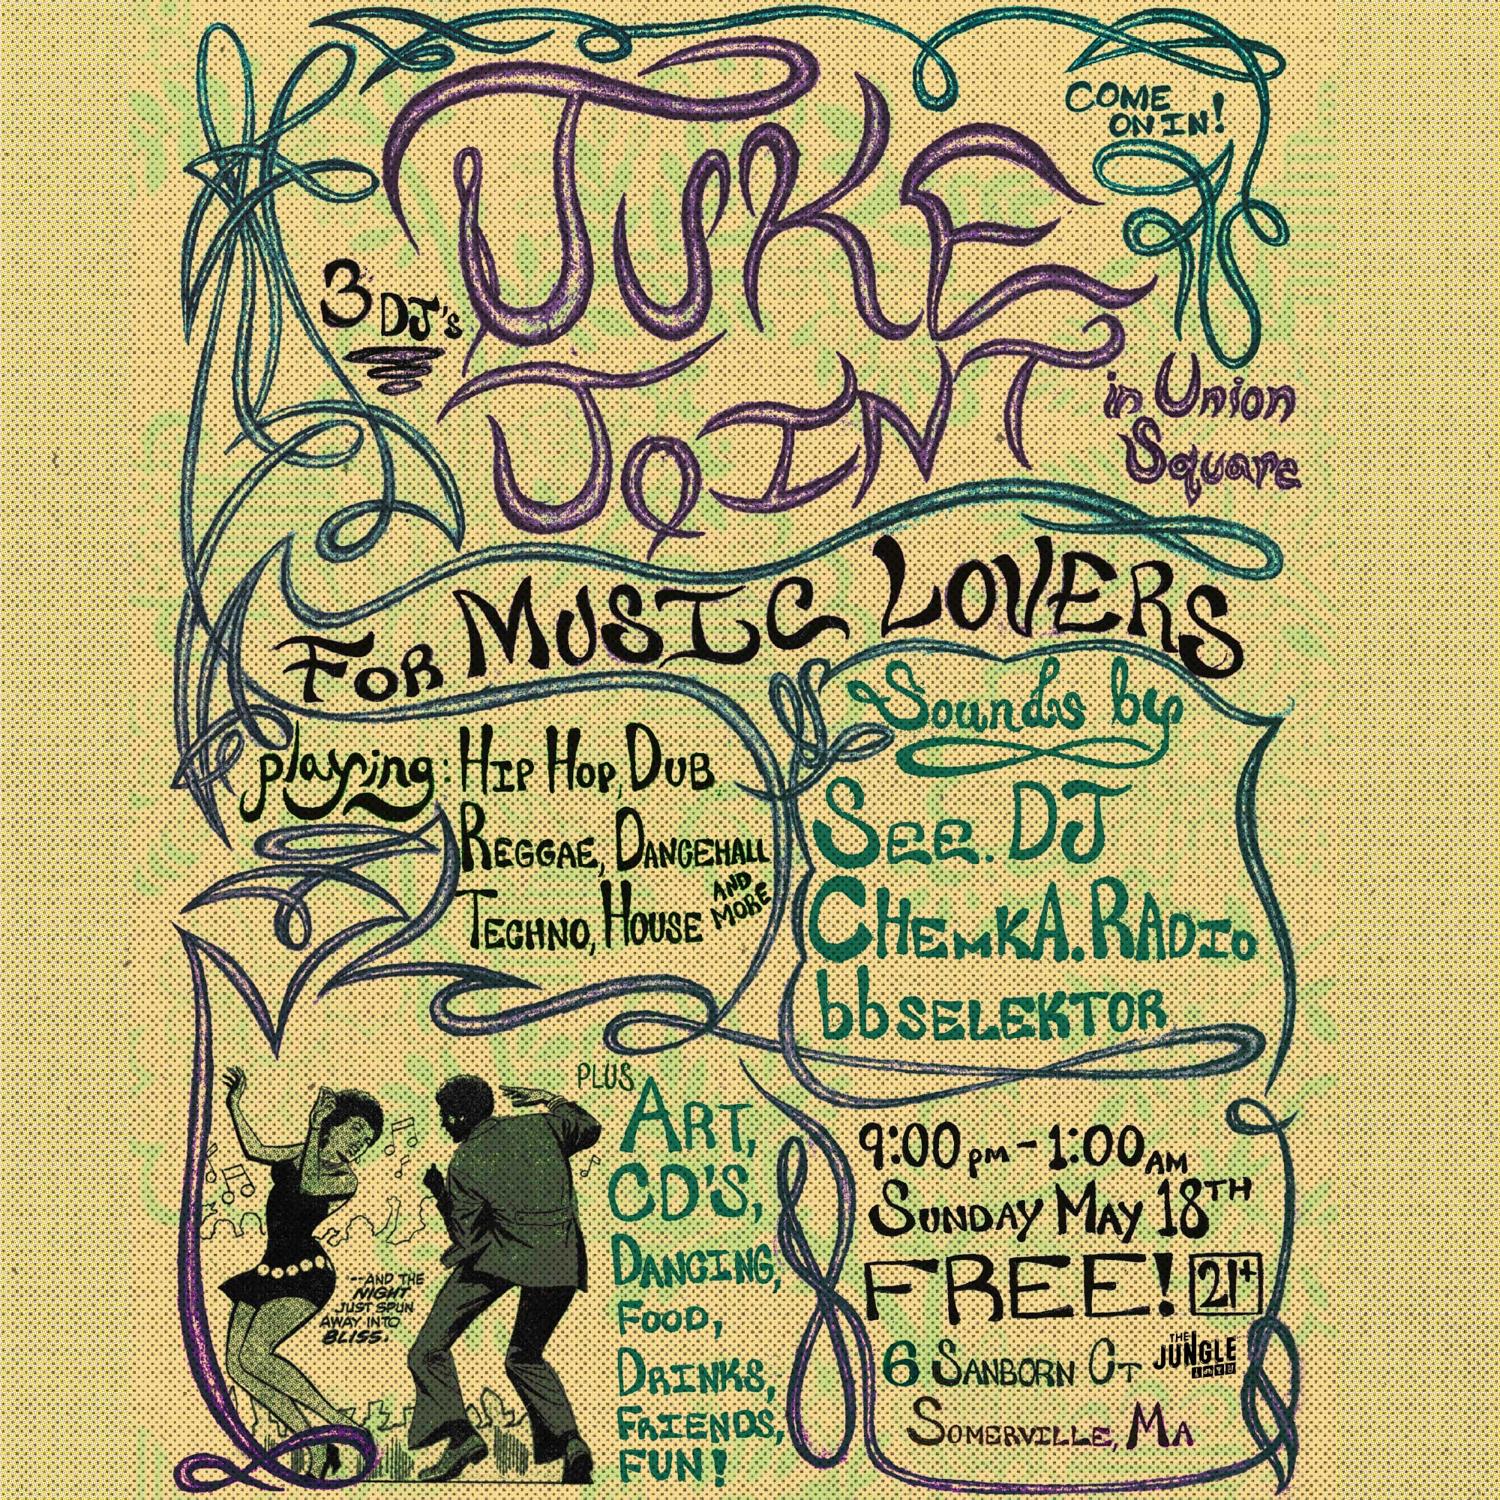 COME
ON IN!
JUKE
3 DJ's
JOINT
in Union
Square
FOR MUSIC LOVERS
playing: HIP HOP, DUB,
REGGAE, DANCEHALL
TECHNO, HOUSE AND
MORE
Sounds by
SEE. DJ
CHEMKA.RADIO
bbSELEKTOR
PLUS
ART,
CD'S,
DANCING,
FOOD,
DRINKS,
FRIENDS,
FUN!
--AND THE
NIGHT
JUST SPUN
AWAY INTO
BLISS.
9:00 pm - 1:00 AM
SUNDAY MAY 18TH
FREE! 21+
6 SANBORN CT
THE
JUNGLE
SOMERVILLE, MA